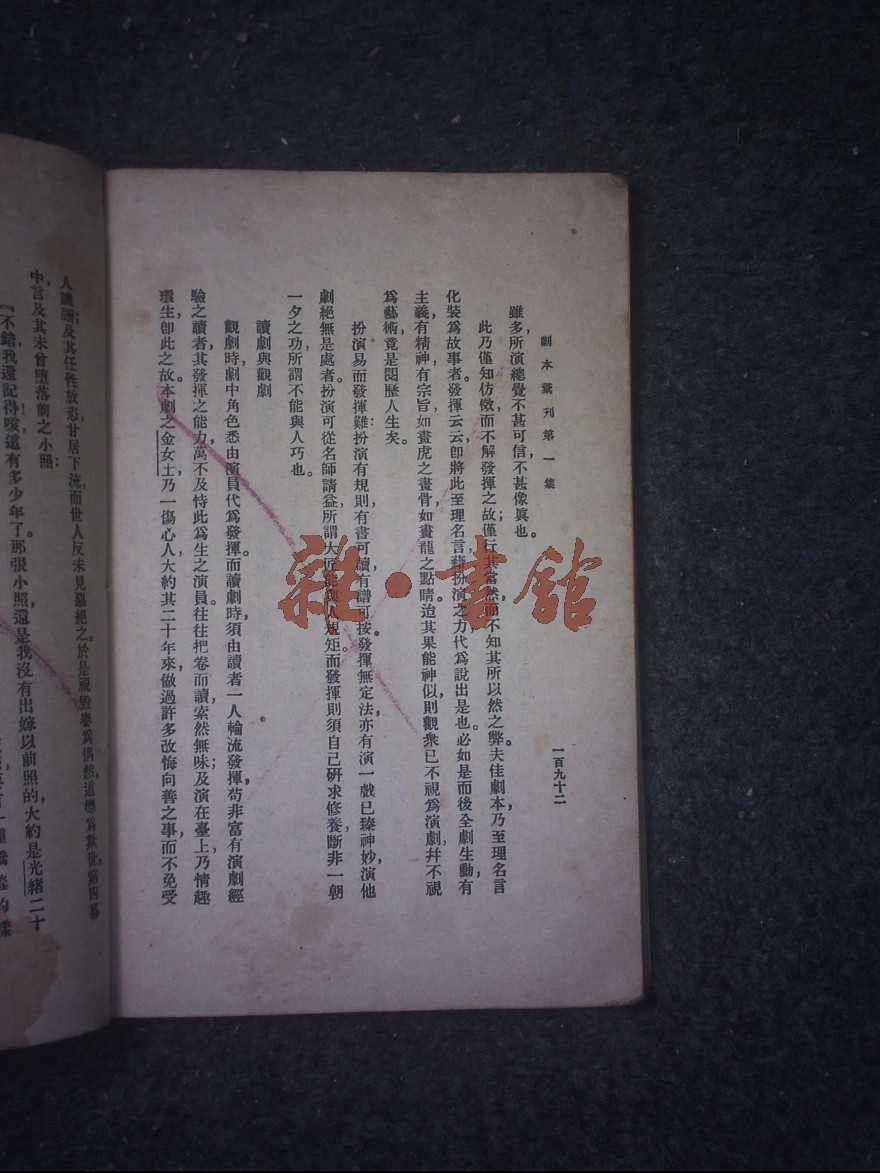 劇本彙刊第一集
一百九十二
雖多所演總覺不甚可信不甚像眞也。
此乃僅知仿傚而不解發揮之故僅行其當然而不知其所以然之弊。夫佳劇本乃至理名言
化裝爲故事者發揮云云卽將此至理名言藉扮演之力代爲說出是也。必如是而後全劇生動有
主義有精神有宗旨如畫虎之畫骨如畫龍之點睛迨其果能神似則觀衆已不視爲演劇幷不視
爲藝術竟是閱歷人生矣。
扮演易而發揮難扮演有規則有書可讀有譜可按。發揮無定法亦有演一戲已臻神妙演他
劇絕無是處者扮演可從名師請益所謂大匠能與人規矩。而發揮則須自己研求修養斷非一朝
一夕之功所謂不能與人巧也。
讀劇與觀劇
觀劇時劇中角色悉由演員代爲發揮。而讀劇時須由讀者一人輪流發揮苟非富有演劇經
驗之讀者其發揮之能力萬不及恃此爲生之演員。往往把卷而讀索然無味及演在臺上乃情趣
環生卽此之故。本劇之金女士乃一傷心人大約其二十年來做過許多改悔向善之事而不免受
人譏誚；及其任性放恣甘居下流而世人反未見惡絕之。於是視毀譽爲偶然道德爲欺世。第四幕
中言及其未曾墮落前之小照：
『不錯！我還記得咳這有多少年了。那張小照還是我沒有出嫁以前照的大約是光緒二十
雜·書館